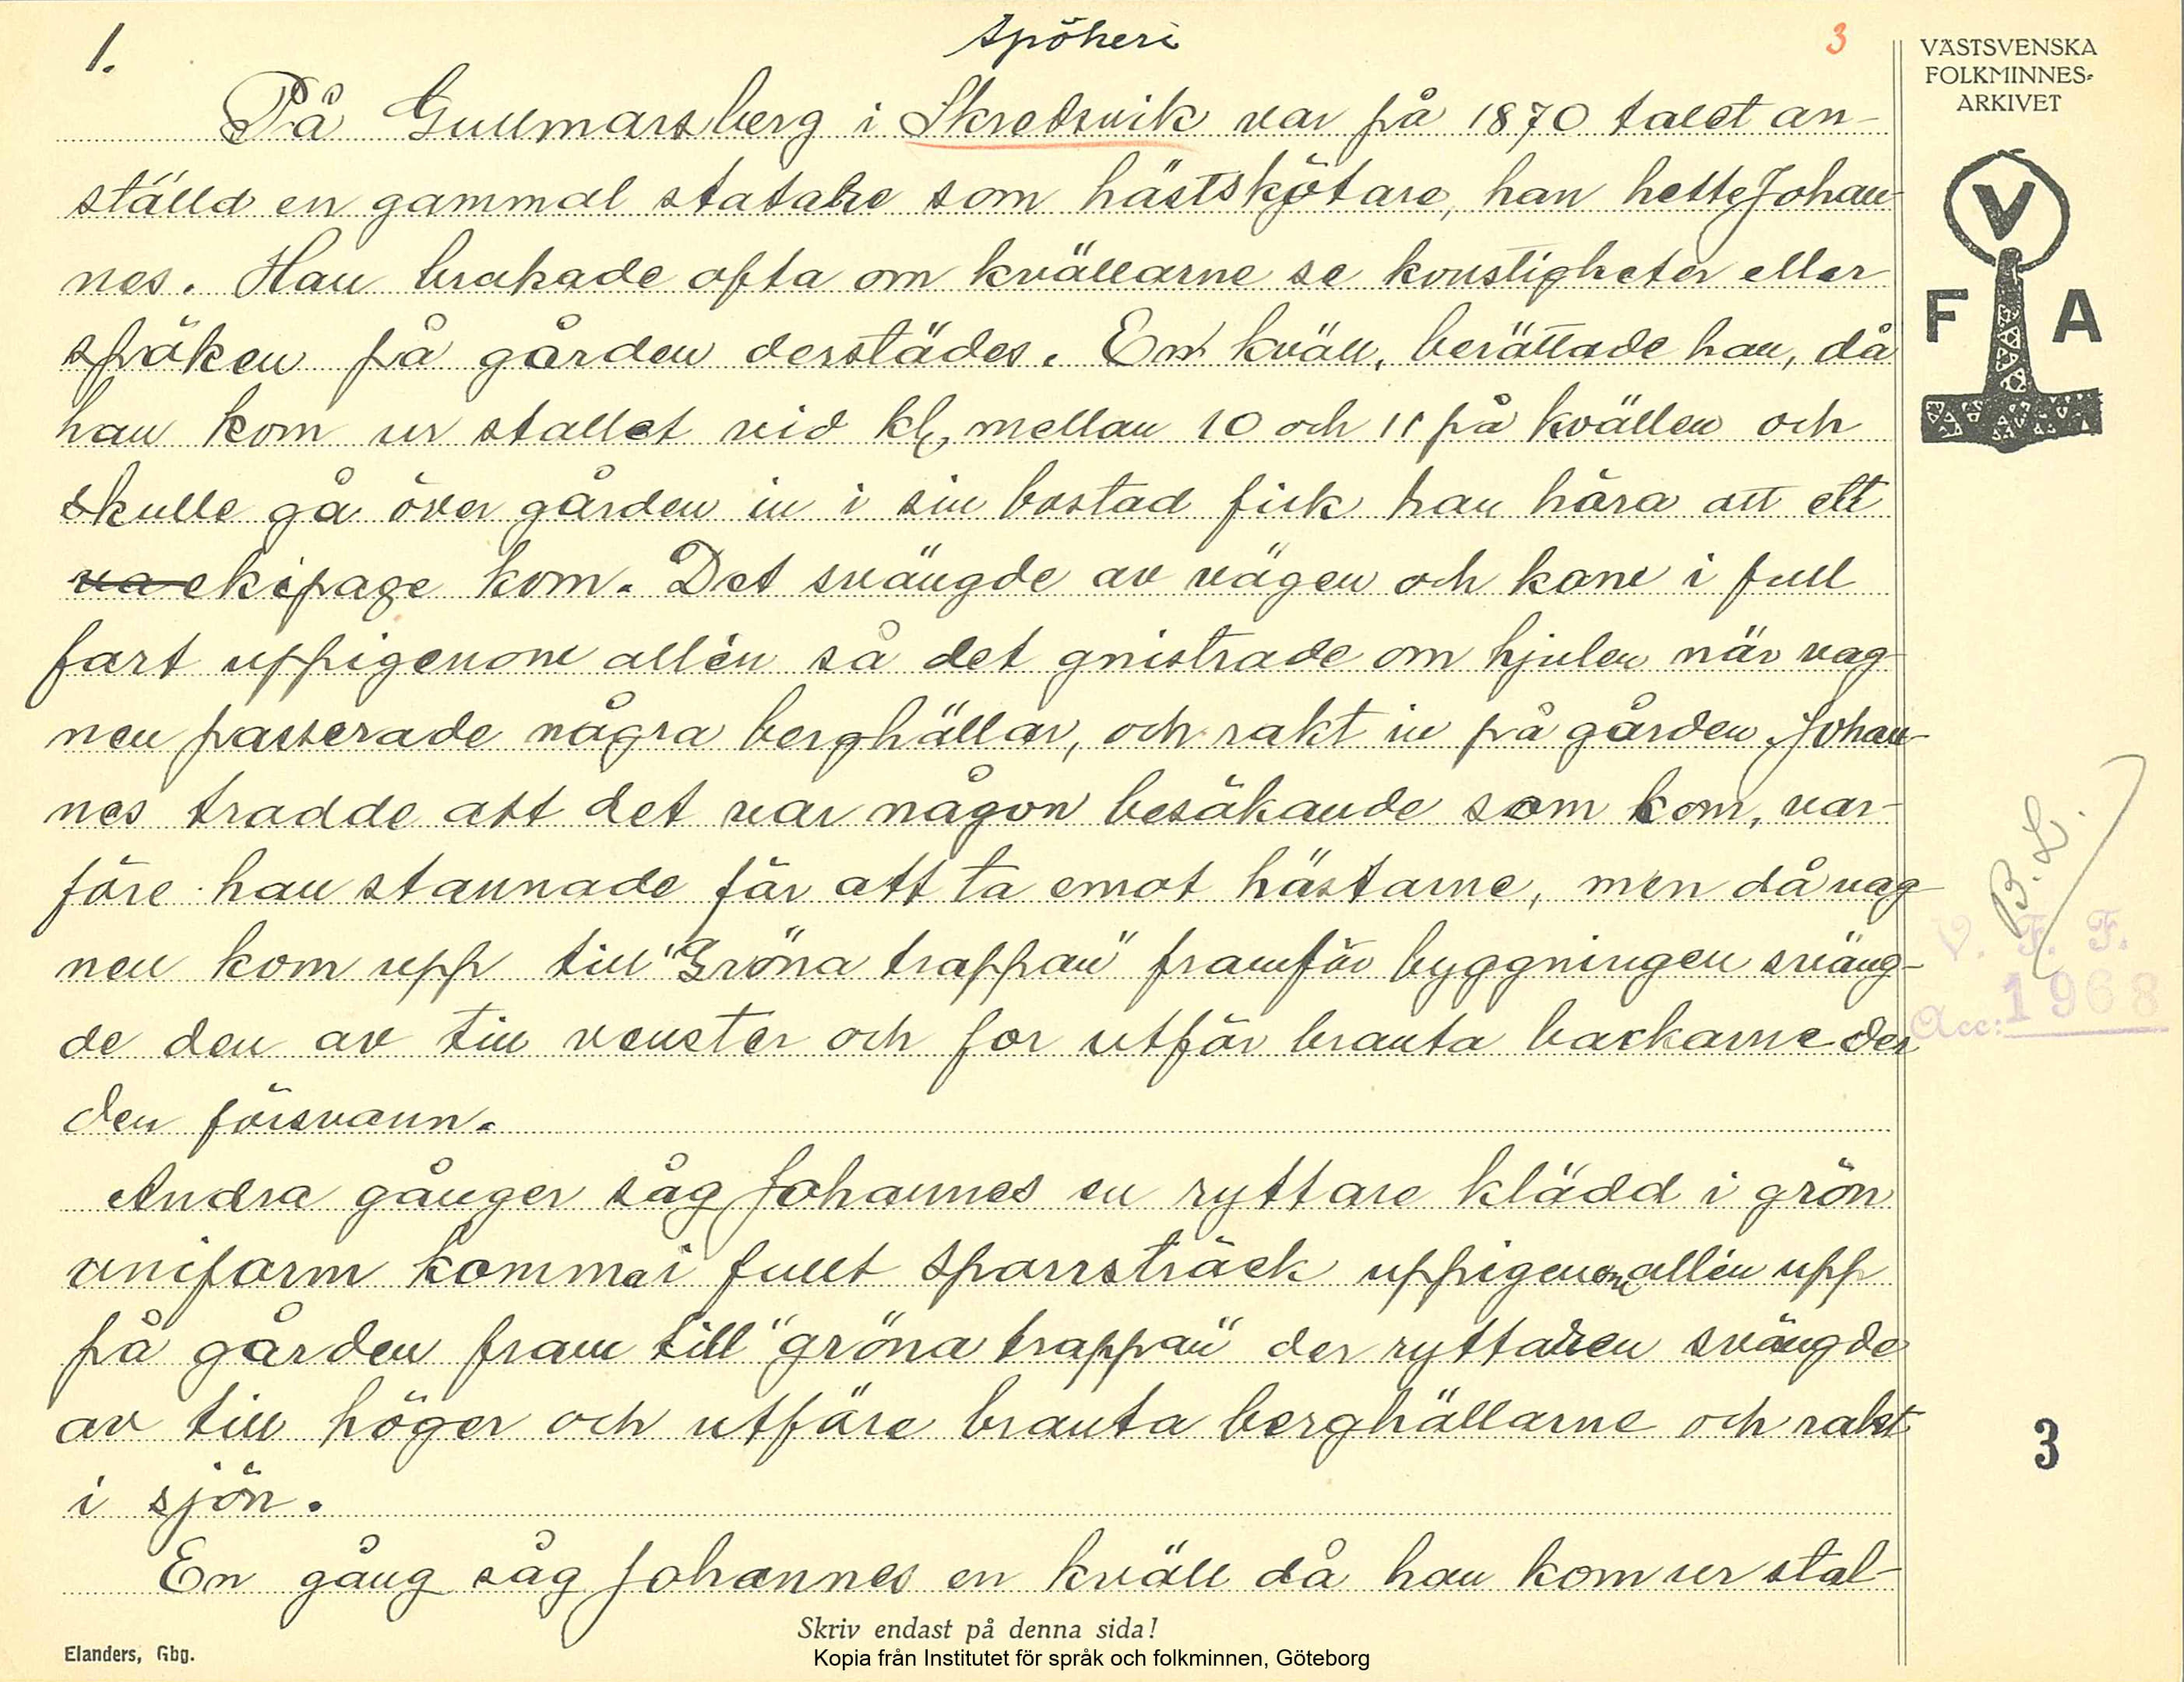 1.
spökeri
3
VÄSTSVENSKA
FOLKMINNES-
ARKIVET
På Gullmarsberg i Skredsvik var på 1870 talet an-
ställd en gammal statare som hästskötare, han hette Johan-
nes. Han brukade ofta om kvällarne se konstigheter eller
spöken på gården derstädes. En kväll, berättade han, då
han kom ur stallet vid kl, mellan 10 och 11 på kvällen och
skulle gå över gården in i sin bostad fick han höra att ett
va ekipage kom. Det svängde av vägen och kom i full
fart uppigenom allén så det gnistrade om hjulen när vag
nen passerade några berghällar, och rakt in på gården Johan-
nes trodde att det var någon besökande som kom, var-
före han stannade för att ta emot hästarne, men då vag
nen kom upp till "Gröna trappan" framför byggningen sväng-
de den av till venster och for utför branta backarne der
den försvann.
Andra gånger såg Johannes en ryttare klädd i grön
uniform komma i fullt sporrsträck uppigenom allén upp
på gården fram till "gröna trappan" der ryttaren svängde
av till höger och utföre branta berghällarne och rakt
i sjön.
En gång såg Johannes en kväll då han kom ur stal-
V
F A
B. L.
V. F. F.
Acc: 1968
3
Skriv endast på denna sida!
Elanders, Gbg.
Kopia från Institutet för språk och folkminnen, Göteborg